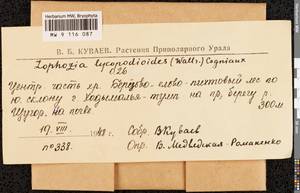 Herbarium MW, Bryophyta
MW 9 116 087
В. Б. КУВАЕВ. Растения Приполярного Урала
Lophozia lycopodioides (Wallr.) Cogniaux
026
Центр. часть хр. елово-пихтовый лес по
ю. склону г. на пр. берегу р.
Щугор. На почве. 300м
19. VIII. Собр. В Куваев
n°338. Опр. В. Медведская-Романенко